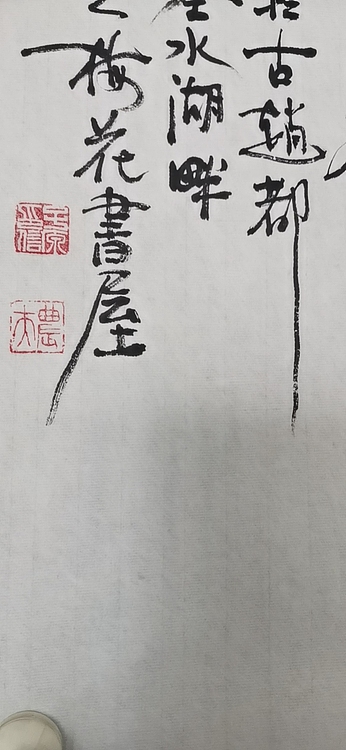 古趙都
水湖畔
之梅花書屋